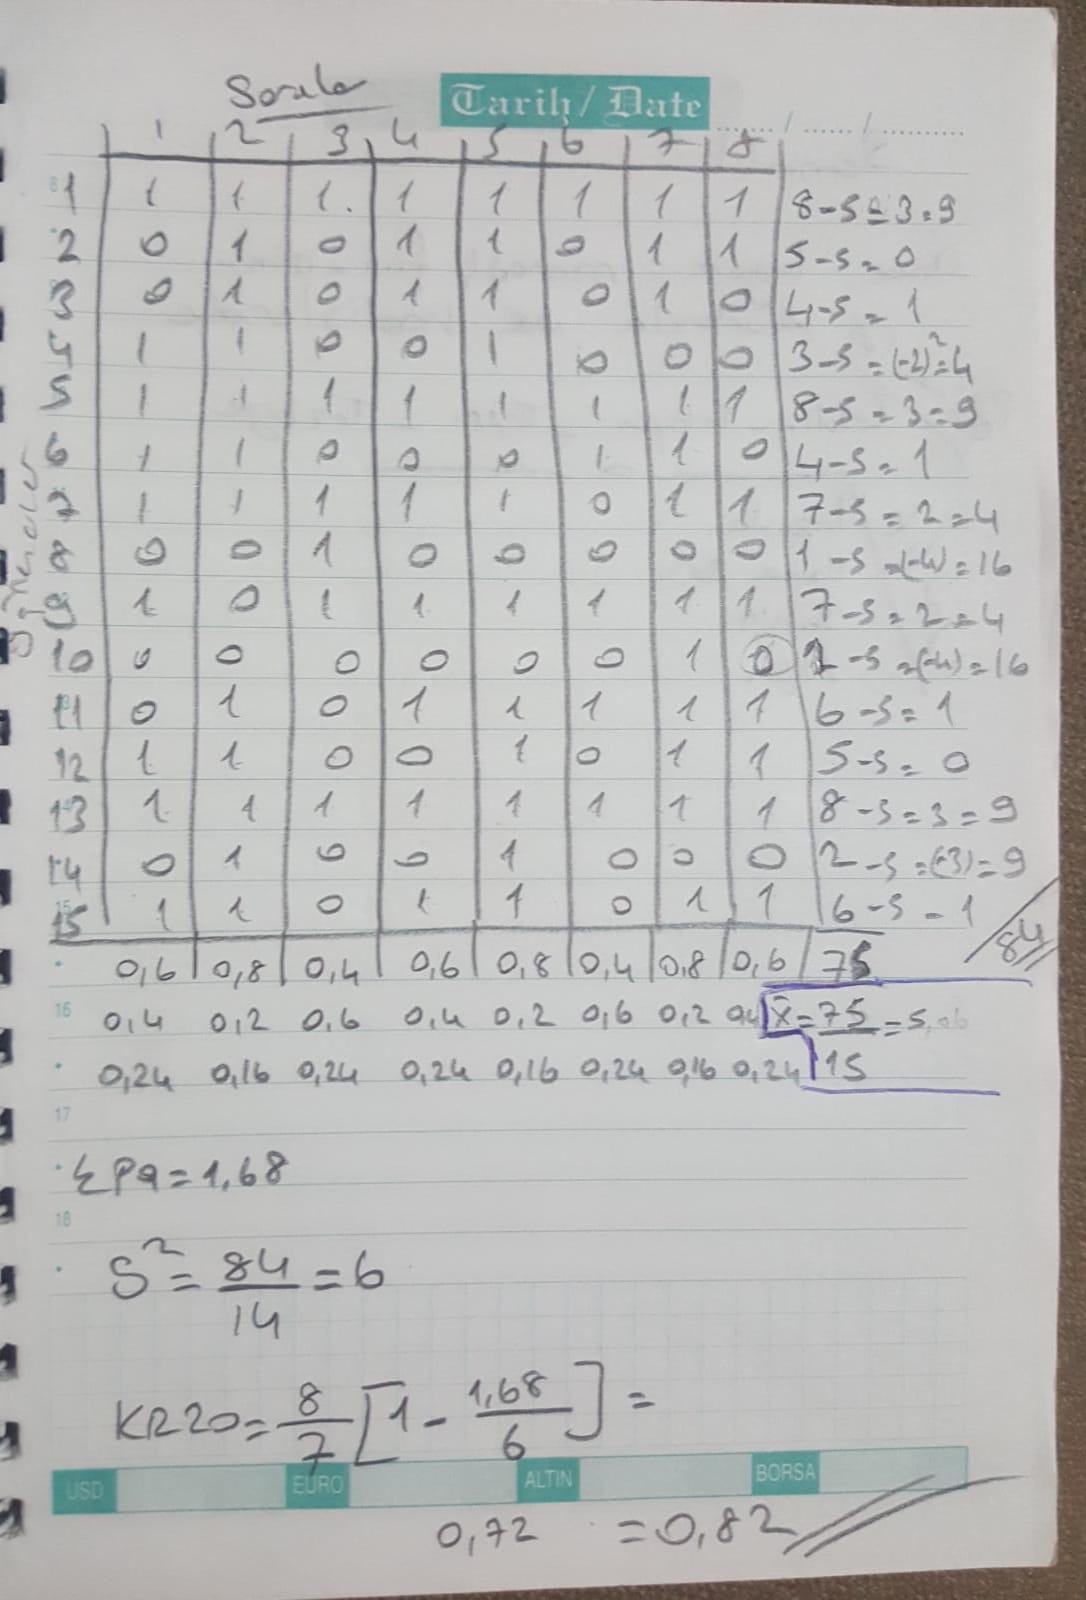 Sorular
Tarih/Date ....... / ...... / ..........
1 2 3 4 5 6 7 8
Öğrenciler
1 1 1 1. 1 1 1 1 1 8-5=3=9
2 0 1 0 1 1 0 1 1 5-5=0
3 0 1 0 1 1 0 1 0 4-5=1
5 1 1 0 0 1 0 0 0 3-5=(-2)²=4
5 1 1 1 1 1 1 1 1 8-5=3=9
6 1 1 0 0 0 1 1 0 4-5=1
7 1 1 1 1 1 0 1 1 7-5=2=4
8 0 0 1 0 0 0 0 0 1-5=(-4)=16
9 1 0 1 1 1 1 1 1 7-5=2=4
10 0 0 0 0 0 0 1 0 1-5=(-4)=16
11 0 1 0 1 1 1 1 1 6-5=1
12 1 1 0 0 1 0 1 1 5-5=0
13 1 1 1 1 1 1 1 1 8-5=3=9
14 0 1 0 0 1 0 0 0 2-5=(-3)=9
15 1 1 0 1 1 0 1 1 6-5=1
84
0,6 0,8 0,4 0,6 0,8 0,4 0,8 0,6 75
16 0,4 0,2 0,6 0,4 0,2 0,6 0,2 0,4 x̄=75/15=5,
0,24 0,16 0,24 0,24 0,16 0,24 0,16 0,24
17
ΣPq=1,68
18
S²=84/14=6
KR20=8/7[1-1,68/6]=
USD EURO ALTIN BORSA
0,72 =0,82